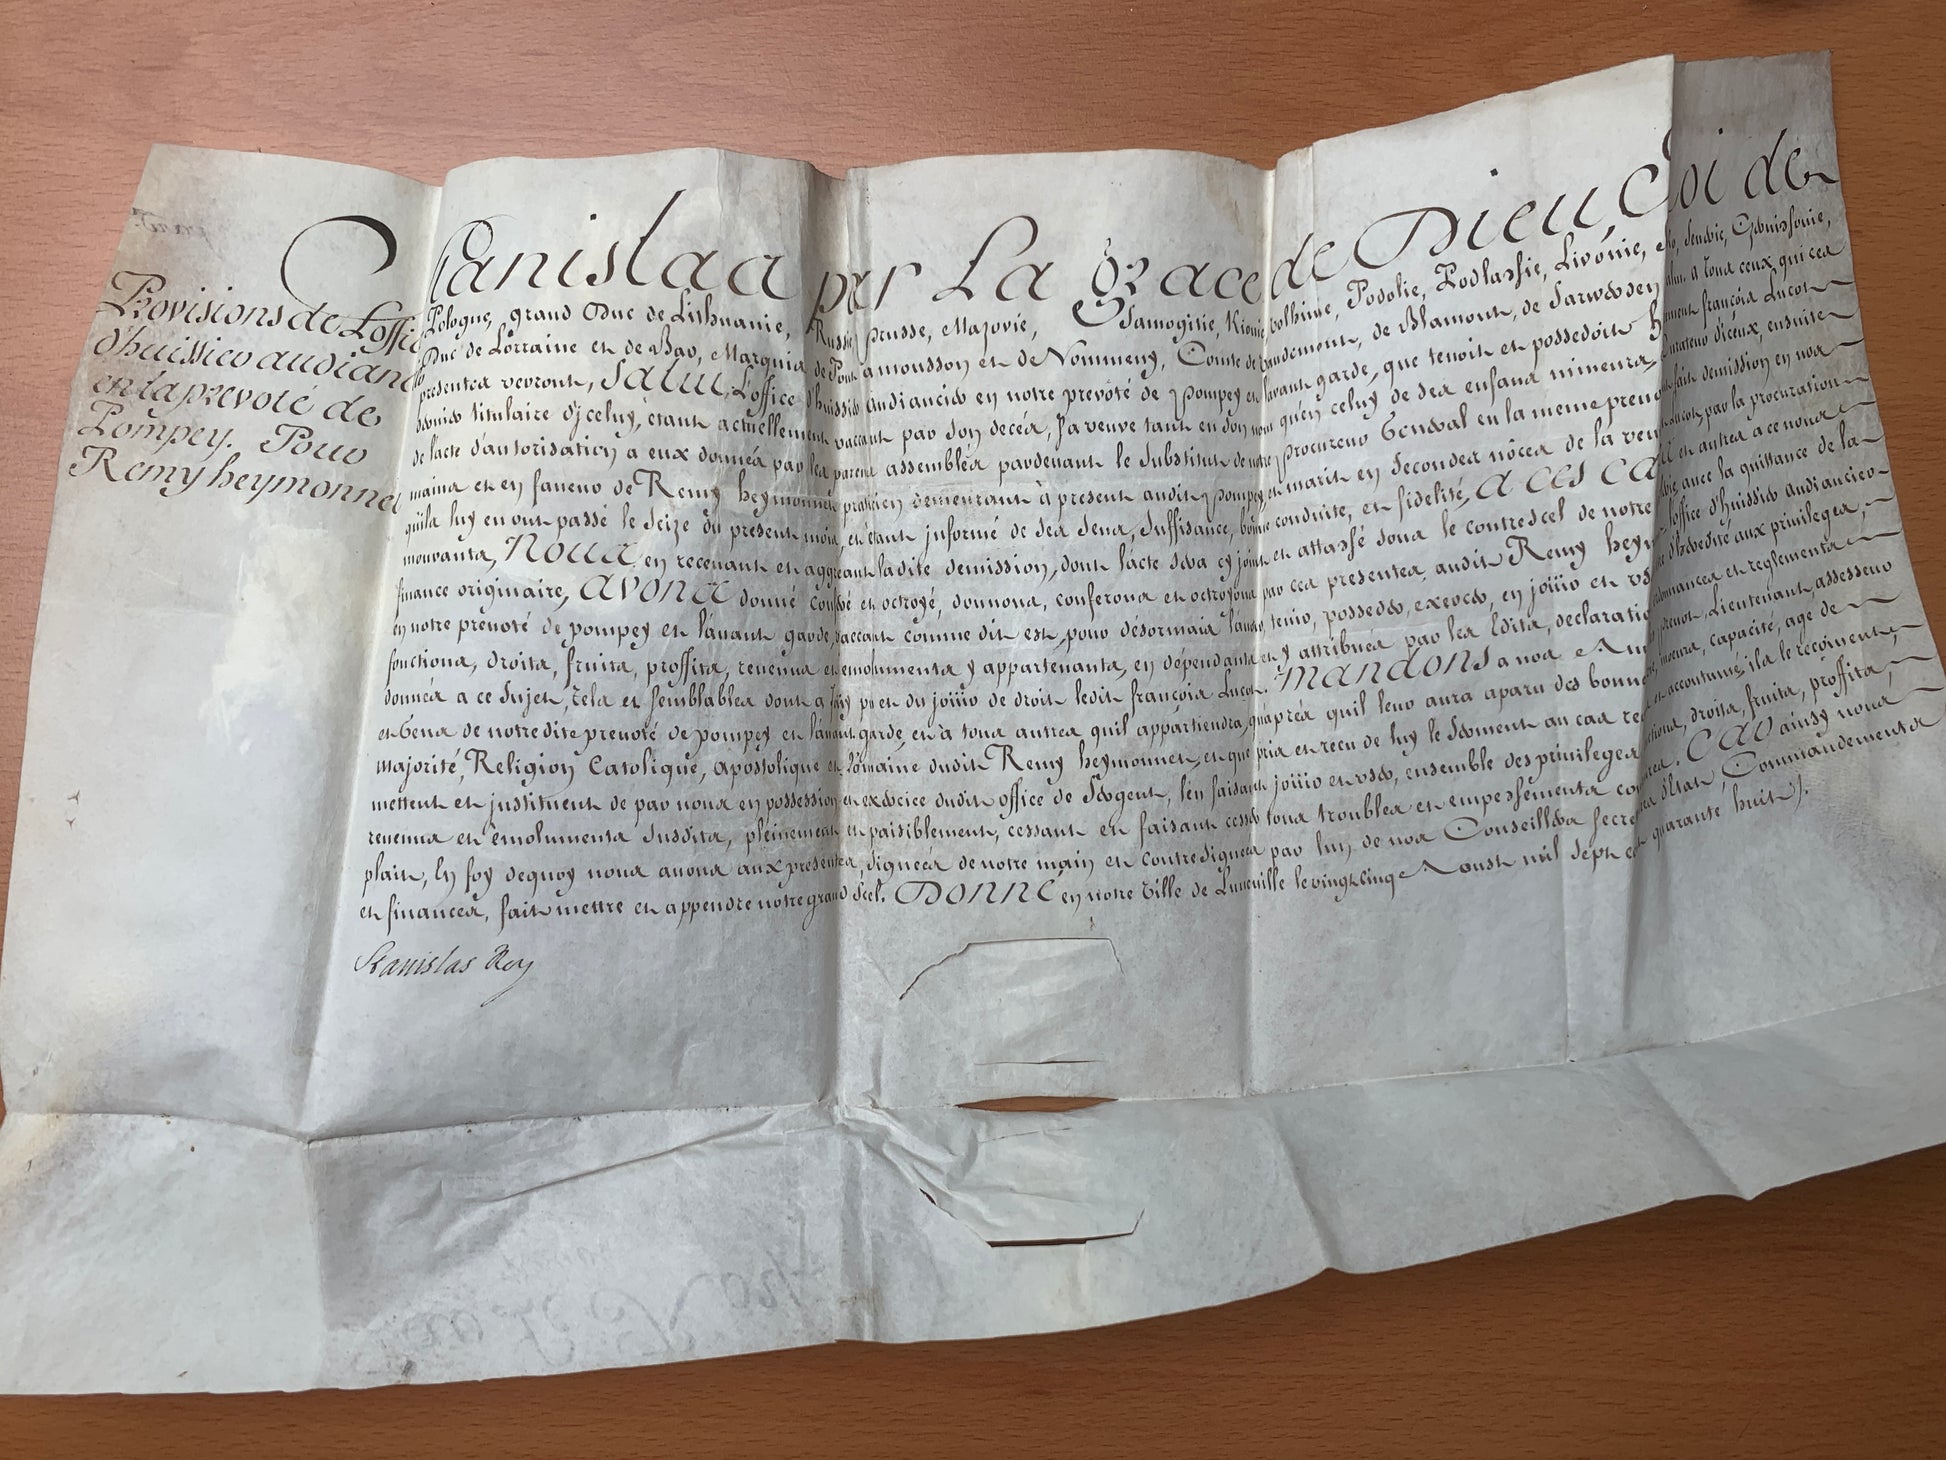 Provisions de L'offi
d'huissier audian
en la prevoté de
Pompey. Pour
Remy heymonnet
Stanislas par La Grace de Dieu, Roi de
Pologne, grand Duc de Lithuanie, Russie, prusse, Mazovie, Samogitie, Kiovie, volhinie, Podolie, Podlassie, Livonie,
Duc de Lorraine et de Bar, Marquis de Pont amousson et de Nommeny, Comte de vaudemont, de Blamont, de Sarwerden
presentes verront, Salut, L'office d'huissier Audiancier en notre prevoté de Pompey et lavant garde, que tenoit et possedoit françois Lucot
dernier titulaire d'jceluy, étant actuellement vaccant par son decés, sa veuve tant en son nom qu'en celuy de ses enfans mineurs, ensuite
de l'acte d'autorisation a eux donnés par les parens assemblés pardevant le Substitut de notre Procureur General en la meme prevo fait demission en nos
mains et en faveur de Remy heymonnet praticien demeurant à present audit Pompey et marit en secondes nôces de la veu par la procuration
quils luy en ont passé le seize du present mois, et étant jnformé de ses sens, suffisance, bonne conduite, et fidelité, A CES CA et autres a ce nous
mouvants, Nous en recevant et aggreant ladite demission, dont lacte sera cy joint et attassé sous le contrescel de notre avec la quittance de la
finance originaire, Avons donné conferé et octroyé, donnons, conferons et octroyons par ces presentes, audit Remy hey l'office d'huissier audiancier
en notre prevoté de pompey et lavant garde, vaccant comme dit est, pour désormais l'avoir, tenir, posseder, exercer, en joüir et us d'heredité aux privileges,
fonctions, droits, fruits, proffits, revenus et emolumens y appartenants, en dépendants et y attribués par les Edits, declaratio ordonnances et reglements
donnés a ce sujet, tels et semblables dont a joüy pu et du joüir de droit ledit françois Lucot. Mandons a nos prevot, Lieutenant, assesseur
et Gens de notredite prevoté de pompey et lavant garde, et à tous autres quil appartiendra, qu'aprés quil leur aura aparu des bonne moeurs, capacité, age de
majorité, Religion Catolique, apostolique et Romaine dudit Remy heymonnet, et que pris et recu de luy le serment au cas re et accoutumé, ils le reçoivent,
mettent et jnstituent de par nous en possession et exercice dudit office de Sergent, l'en faisant joüir et user, ensemble des privileges droits, fruits, proffits,
revenus et emolumens susdits, pleinement et paisiblement, cessant et faisant cesser tous troubles et empessements Car ainsy nous
plait, En foy dequoy nous avons aux presentes, signées de notre main et contresignées par l'un de nos Conseillers Secre d'Etat Commandements
et finances, fait mettre et appendre notre grand Scel. Donné en notre Ville de Luneville le vingt cinq Aoust mil sept cent quarante huit).
Stanislas Roy